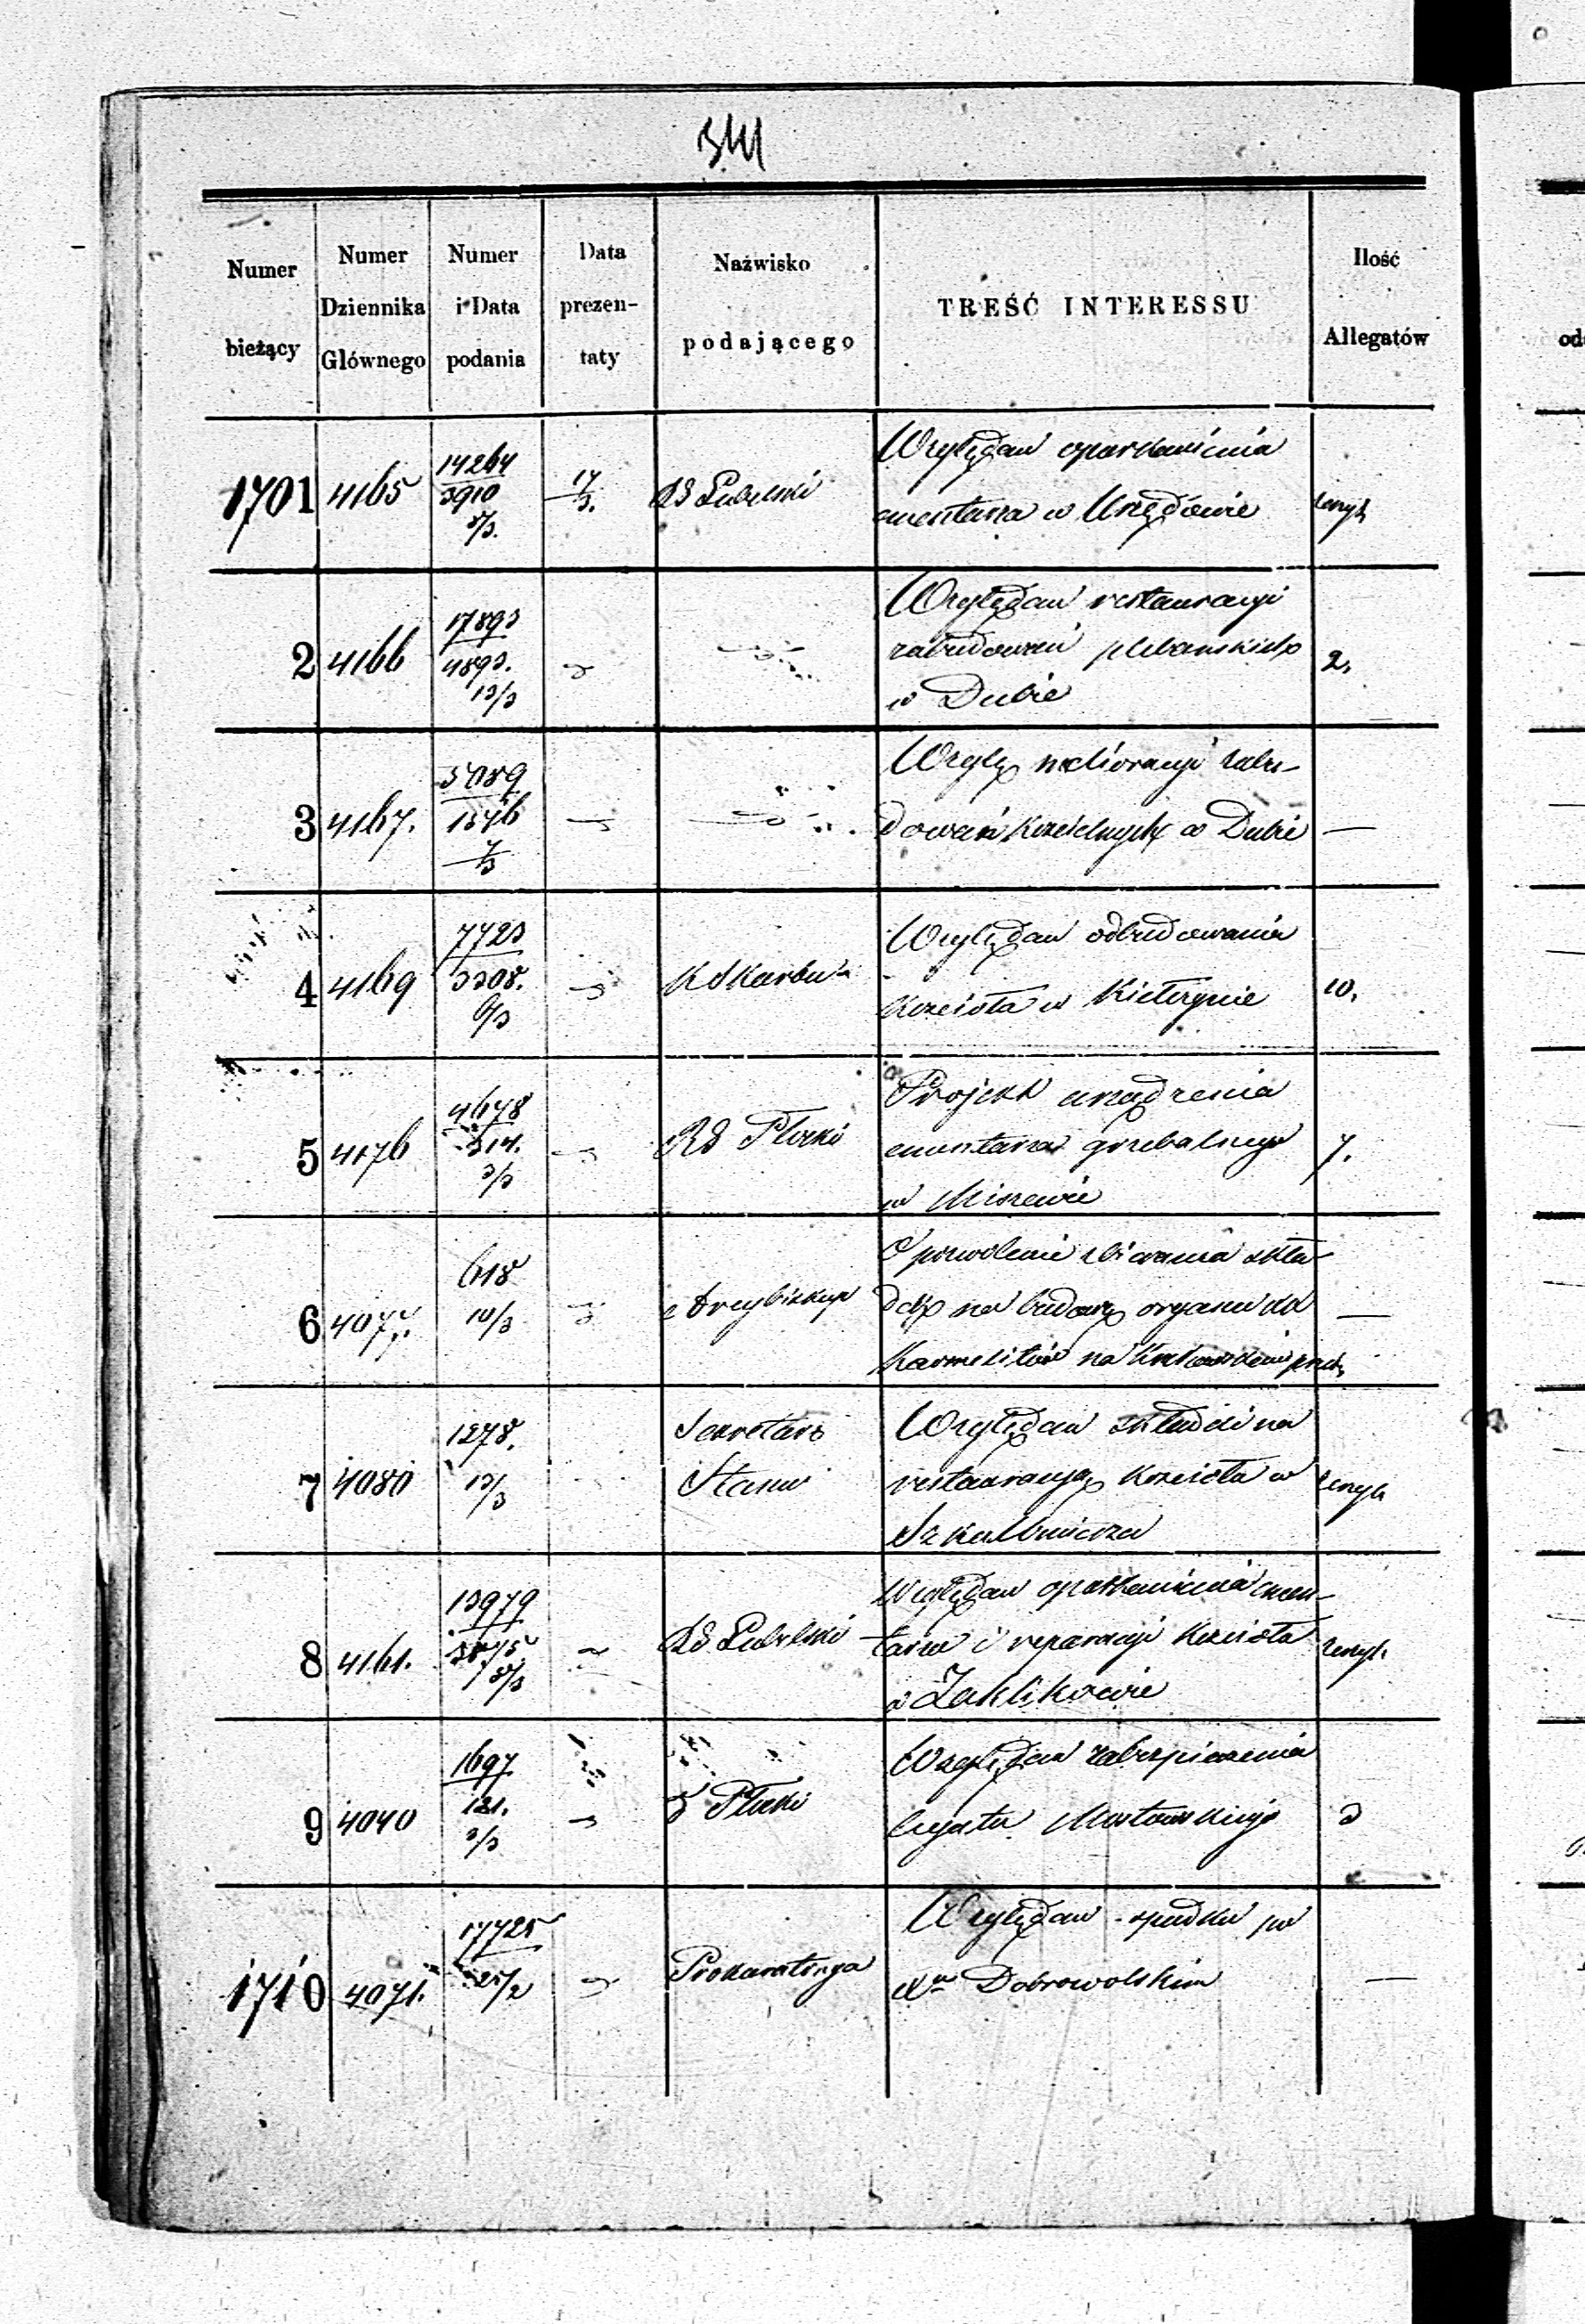 Numer bieżący
Numer Dziennika Głównego
Numer i Data podania
Data prezen-taty
Nazwisko podającego
TREŚĆ INTERESSU
Ilość Allegatów
1701 4165 14264 / 3910 8/3. 17/3. RG Lubelski
Względem oparkanienia
cmentarza w Urzędowie
zeszyt
2 4166 17893 / 4893. 13/3
Względem restauracyi
zabudowań plebańskich
w Dubie
2.
3 4167. 5089 / 1546 7/3
Wzglę melioracyi zabu-
dowań kościelnych w Dubie —
4 4169 7723 / 3308. 6/3 K Skarbu
Względem odbudowania
kościoła w Kieterynie
10.
5 4176 4678 / 514. 3/3 RG Płocki
Projekt urządzenia
cmentarza grzebalnego
w Miszewie
7.
6 4077. 618 10/3 Arcybiskup
O pozwolenie zbierania skła-
dek na budowę organu dla
Karmelitów na Krakowskiem przed.
—
7 4080 1278. 13/3 Sekretarz
Stanu
Względem składki na
restauracyą kościoła w
Szkalbmierzu
zeszyt
8 4161. 13979 / 3875 8/3 RG Lubelski
Względem oparkanienia cmen-
tarza i reparacyi kościoła
w Zaklikowie
zeszyt
9 4040 1697 / 121. 3/3 Płocki
Względem zabezpieczenia
legatu Mostowskiego
3
1710 4071. 17725 25/2 Prokuratorya
Względem spadku po
Xu Dobrowolskim
—